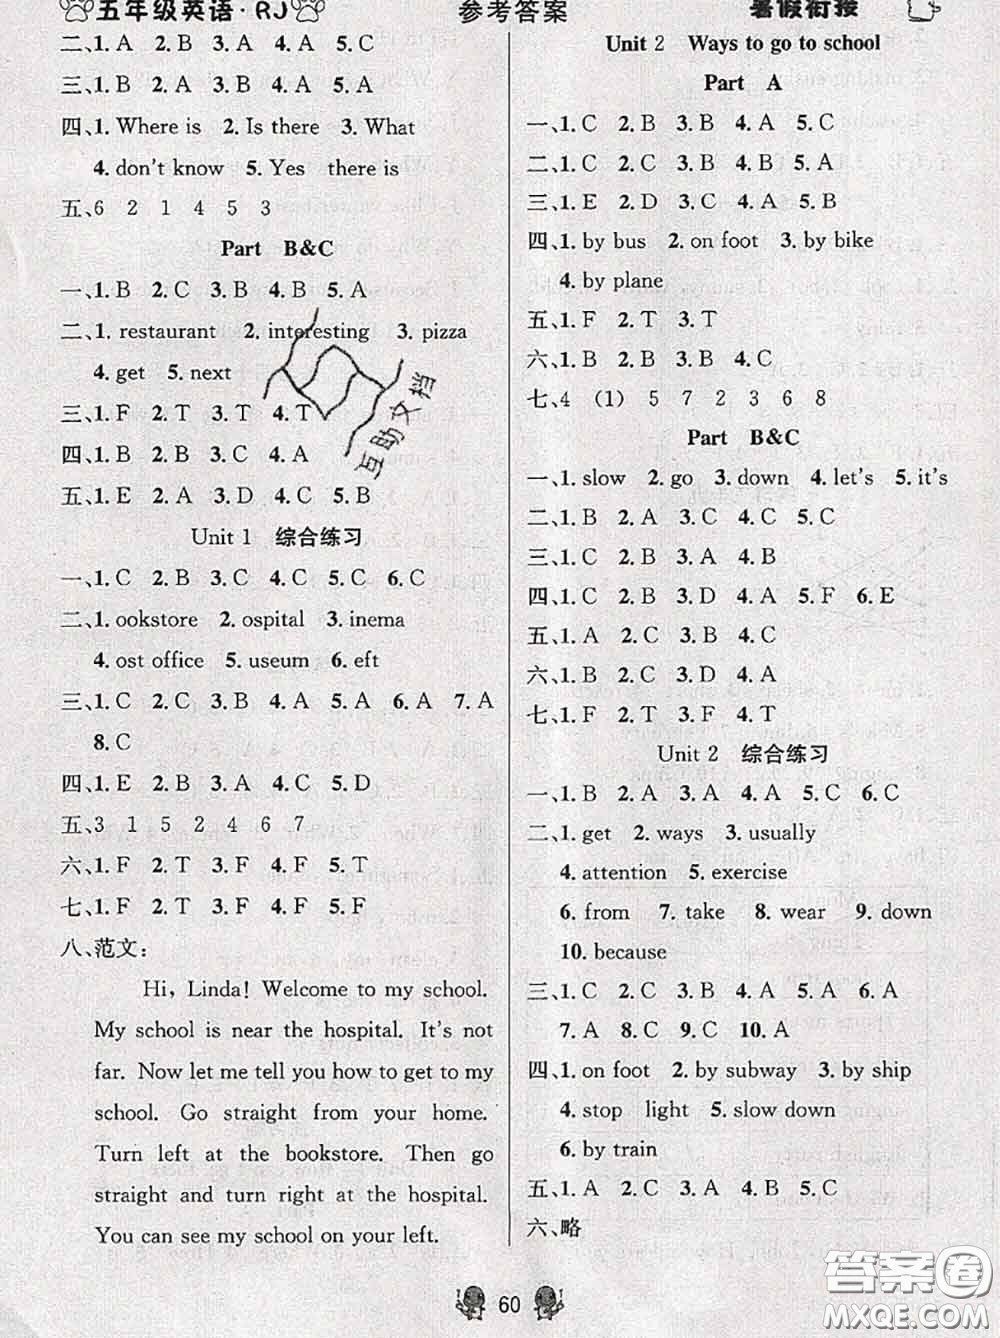 五年级英语·RJ
参考答案
暑假衔接
二、1. A 2. B 3. A 4. A 5. C
三、1. B 2. A 3. B 4. A 5. A
四、1. Where is 2. Is there 3. What
4. don't know 5. Yes there is
五、6 2 1 4 5 3
Part B&C
一、1. B 2. C 3. B 4. B 5. A
二、1. restaurant 2. interesting 3. pizza
4. get 5. next
三、1. F 2. T 3. T 4. T
四、1. B 2. C 3. B 4. A
五、1. E 2. A 3. D 4. C 5. B
Unit 1 综合练习
一、1. C 2. B 3. C 4. C 5. C 6. C
二、1. ookstore 2. ospital 3. inema
4. ost office 5. useum 6. eft
三、1. C 2. C 3. B 4. A 5. A 6. A 7. A
8. C
四、1. E 2. B 3. A 4. C 5. D
五、3 1 5 2 4 6 7
六、1. F 2. T 3. F 4. F 5. T
七、1. F 2. T 3. F 4. F 5. F
八、范文:
Hi, Linda! Welcome to my school.
My school is near the hospital. It's not
far. Now let me tell you how to get to my
school. Go straight from your home.
Turn left at the bookstore. Then go
straight and turn right at the hospital.
You can see my school on your left.
Unit 2 Ways to go to school
Part A
一、1. C 2. B 3. B 4. A 5. C
二、1. C 2. C 3. B 4. B 5. A
三、1. E 2. D 3. C 4. A 5. B
四、1. by bus 2. on foot 3. by bike
4. by plane
五、1. F 2. T 3. T
六、1. B 2. B 3. B 4. A 5. C
七、4 (1) 5 7 2 3 6 8
Part B&C
一、1. slow 2. go 3. down 4. let's 5. it's
二、1. B 2. A 3. C 4. C 5. C
三、1. C 2. B 3. A 4. B
四、1. C 2. B 3. D 4. A 5. F 6. E
五、1. A 2. C 3. B 4. C
六、1. B 2. C 3. D 4. A
七、1. F 2. T 3. F 4. T
Unit 2 综合练习
一、1. B 2. A 3. B 4. A 5. C 6. C
二、1. get 2. ways 3. usually
4. attention 5. exercise
6. from 7. take 8. wear 9. down
10. because
三、1. C 2. C 3. B 4. A 5. A 6. A
7. A 8. C 9. C 10. A
四、1. on foot 2. by subway 3. by ship
4. stop light 5. slow down
6. by train
五、1. A 2. C 3. A 4. B 5. C
六、略
60
互助文档
答案圈
MXQE.COM